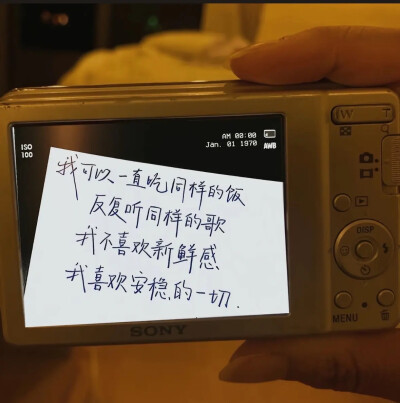 W T
AM 00:00
Jan. 01 1970 AWB
ISO
100
我可以一直吃同样的饭
反复听同样的歌
我不喜欢新鲜感
我喜欢安稳的一切.
DISP
SONY
MENU